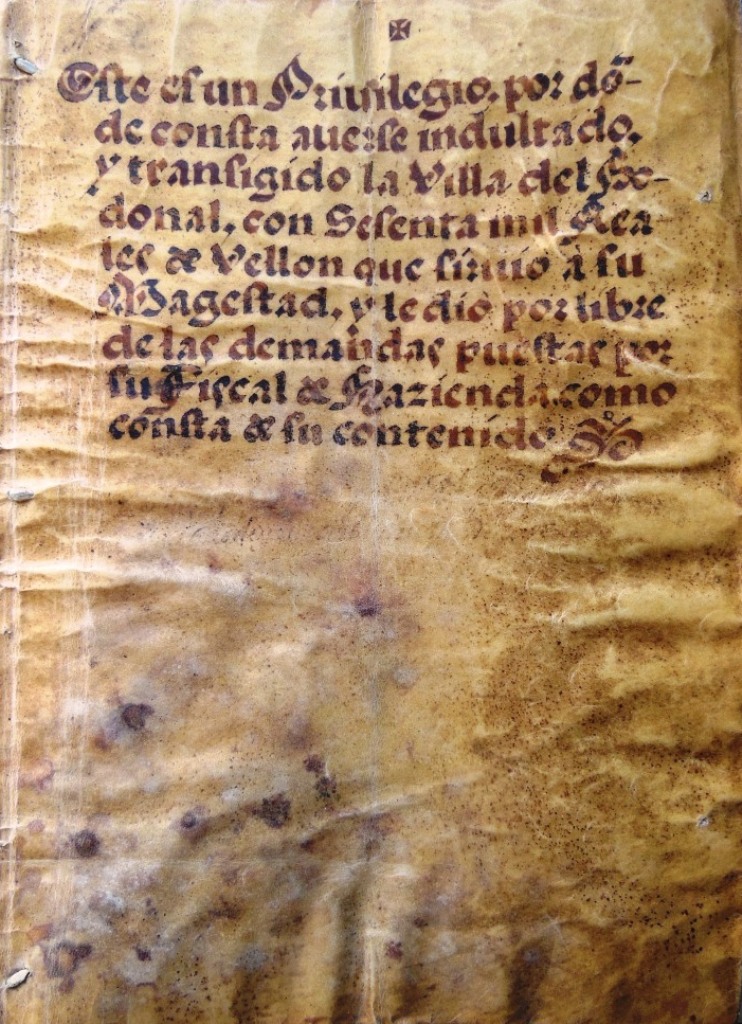 Este es un Privilegio, por dõ-
de consta averse indultado,
y transigido la Villa del Ho-
donal, con Sesenta mil Rea
les de Vellon que sirvio â su
Magestad, y le dio por libre
de las demandas puestas por
su Fiscal de Hazienda, como
cõnsta de su contenido